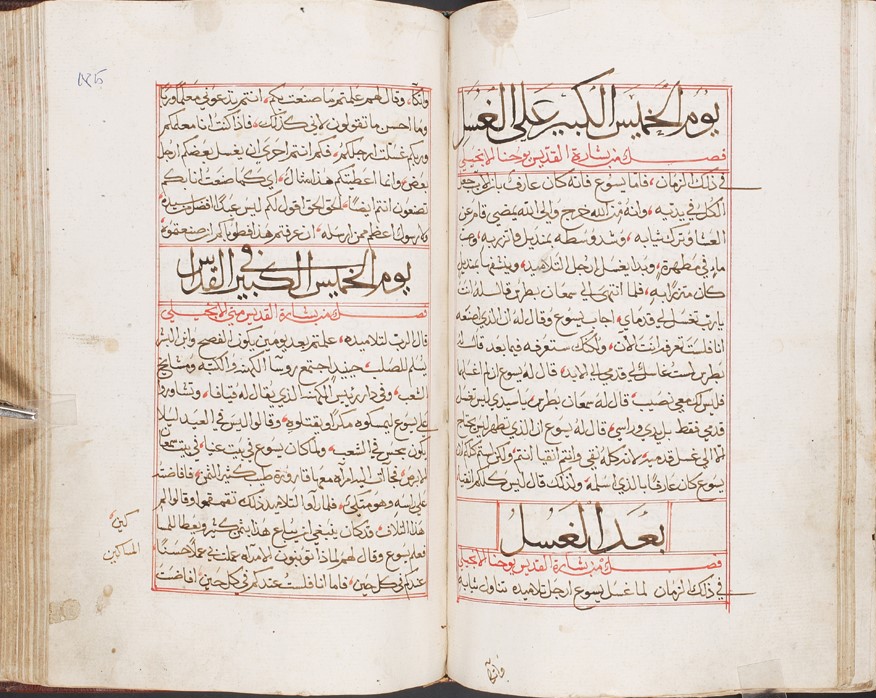 يوم الخميس الكبير على الغسل
فصل من بشارة القديس يوحنا الانجيلي
في ذلك الزمان، فاما يسوع فانه كان عارف بان الاب جعل
الكل في يديه، وانه من الله خرج والى الله يمضي قام عن
العشا وترك ثيابه، وشد وسطه بمنديل فاتزر به، وصب
ماء في مطهرة، وبدا يغسل ارجل التلاميذ، وينشفها بمنديل
كان متزرا به، فلما انتهى الى سمعان بطرس قال له انت
يارب تغسل لي قدماي، اجاب يسوع وقال له ان الذي اصنعه
انا فلست تعرفه انت الان، ولكنك ستعرفه فيما بعد قال له
بطرس لست غاسل لي قدمي الى الابد، قال له يسوع ان لم اغسلهما
فليس لك معي نصيب، قال له سمعان بطرس ياسيدي ليس تغسل
قدمي فقط بل يدي وراسي، قال له يسوع ان الذي تطهر ليس يحتاج
الا الى غسل قدميه، لانه كله نقي وانتم انقيا انتم، ولكن ليس كلكم لان
يسوع كان عارفا بالذي اسلمه، ولذلك قال ليس كلكم انقيا
بعد الغسل
فصل من بشارة القديس يوحنا الانجيلي
في ذلك الزمان لما غسل يسوع ارجل تلاميذه تناول ثيابه
واتكا
واتكا، وقال لهم علمتم ما صنعت بكم، انتم تدعوني معلما وربا
وما احسن ما تقولون لاني كذلك، فاذا كنت انا معلمكم
وربكم غسلت ارجلكم، فكم انتم احرى ان يغسل بعضكم ارجل
بعض، وانما اعطيتكم هذا مثالا، اي كما صنعت انا بكم
تصنعون انتم ايضا، الحق الحق اقول لكم ليس عبد افضل من سيده
ولا رسول اعظم ممن ارسله، ان عرفتم هذا فطوباكم ان صنعتموه
يوم الخميس الكبير في القداس
فصل من بشارة القديس متى الانجيلي
قال الرب لتلاميذه، علمتم بعد يومين يكون الفصح وابن البشر
يسلم للصلب، حينيذ اجتمع روسا الكهنة والكتبة ومشايخ
الشعب، وفي دار رييس الكهنة الذي يقال له قيافا، وتشاوروا
على يسوع ليمسكوه مكرا ويقتلوه، وقالوا ليس في العيد ليلا
يكون سجس في الشعب، ولما كان يسوع في بيت عنيا، في بيت سمعان
الابرص، فجآت اليه امرآة معها قارورة طيب كثير الثمن، فافاضته
على راسه وهو متكي، فلما راوا التلاميذ ذلك تقمقموا وقالوا لم
هذا التلاف، قد كان ينبغي ان يباع هذا بثمن كثير ويعطا للمساكين
فعلم يسوع وقال لهم لماذا توذون الامراه عملت بي عملا حسنا
عندكم في كل حين، فاما انا فلست عندكم في كل حين، افاضت
المساكين